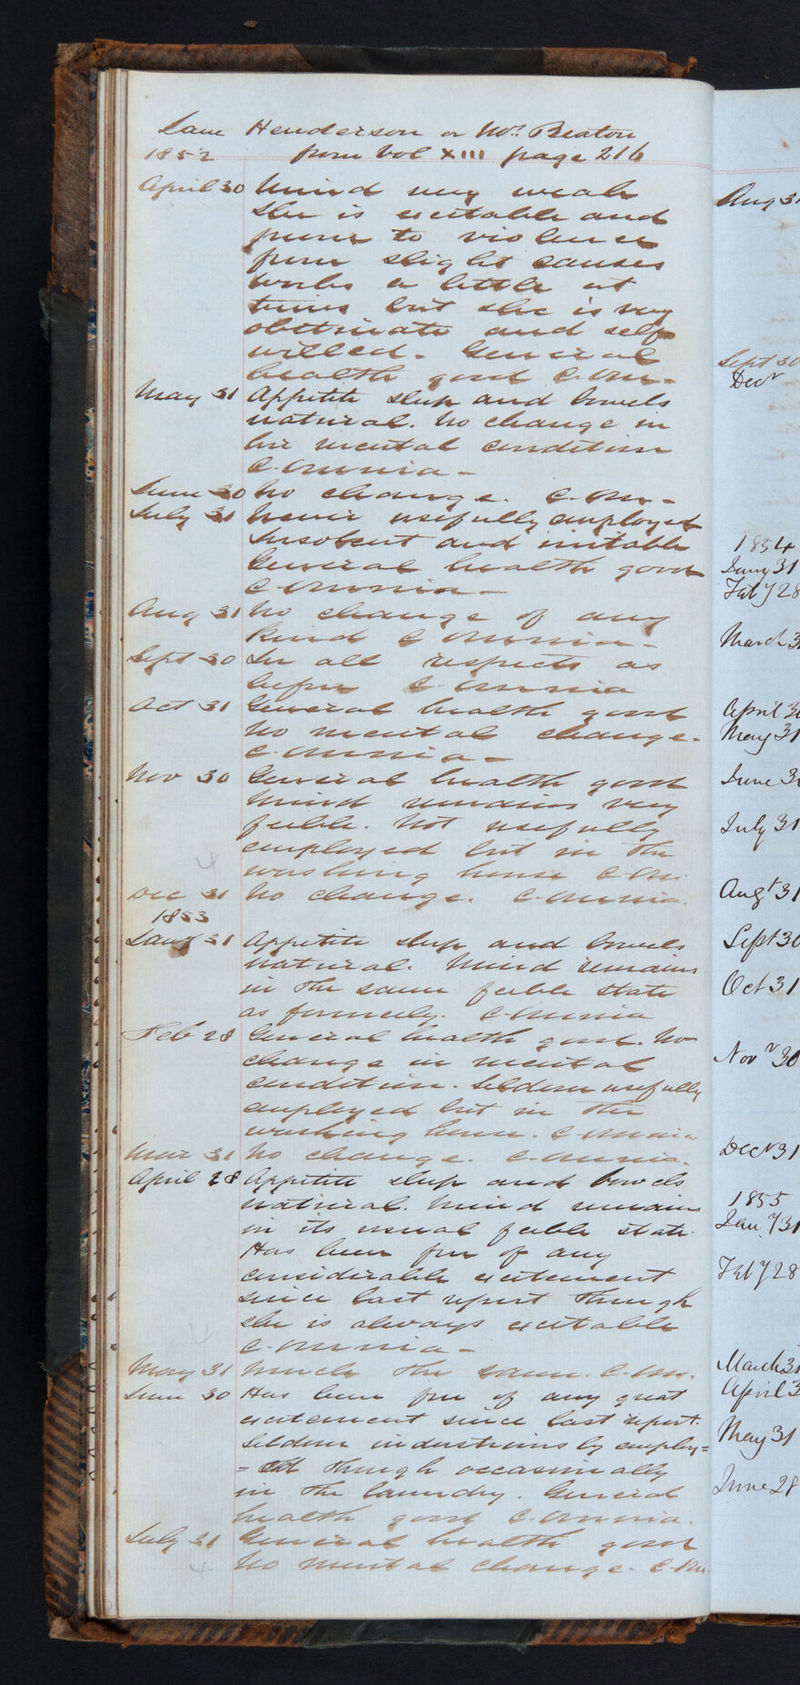 Jane Henderson or Mrs. Beaton
1852 from Vol XIII page 216
April 30 Mind very weak
she is excitable and
prone to violence
from slight causes
works a little at
times but she is very
obstinate and self
willed. General
health good C. Om-
May 31 Appetite sleep and bowels
natural. No change in
her mental condition
C. omnia -
June 30 No change. C. Om-
July 31 Never usefully employed
Insolent and irritable
General health good
C omnia -
Aug 31 No change of any
kind C omnia -
Sept 30 In all respects as
before C. omnia
Oct 31 General health good
No mental change.
C. omnia -
Nov 30 General health good
Mind remains very
feeble. Not usefully
employed but in the
washing house C. Om.
Dec 31 No change. C. omnia.
1853
Jany 31 Appetite sleep and bowels
natural. Mind remains
in the same feeble state
as formerly. C. omnia
Feb 28 General health good. No
change in mental
condition. Seldom usefully
employed but in the
washing house. C omnia
Mar 31 No change. C. omnia.
April 28 Appetite sleep and bowels
natural. Mind remains
in its usual feeble state.
Has been free of any
considerable excitement
since last report though
she is always excitable
C. omnia -
May 31 Much the same. C. Om.
June 30 Has been free of any great
excitement since last report.
Seldom industriously employ=
=ed though occasionally
in the laundry. General
health good C. omnia.
July 31 General health good
No mental change. C. Om
Aug 31
Sept 30
Decr
1854
Jany 31
Feby 28
March 31
April 30
May 31
June 30
July 31
Augt 31
Sept 30
Oct 31
Novr 30
Decr 31
1855
Jany 31
Feby 28
March 31
April 3
May 31
June 28